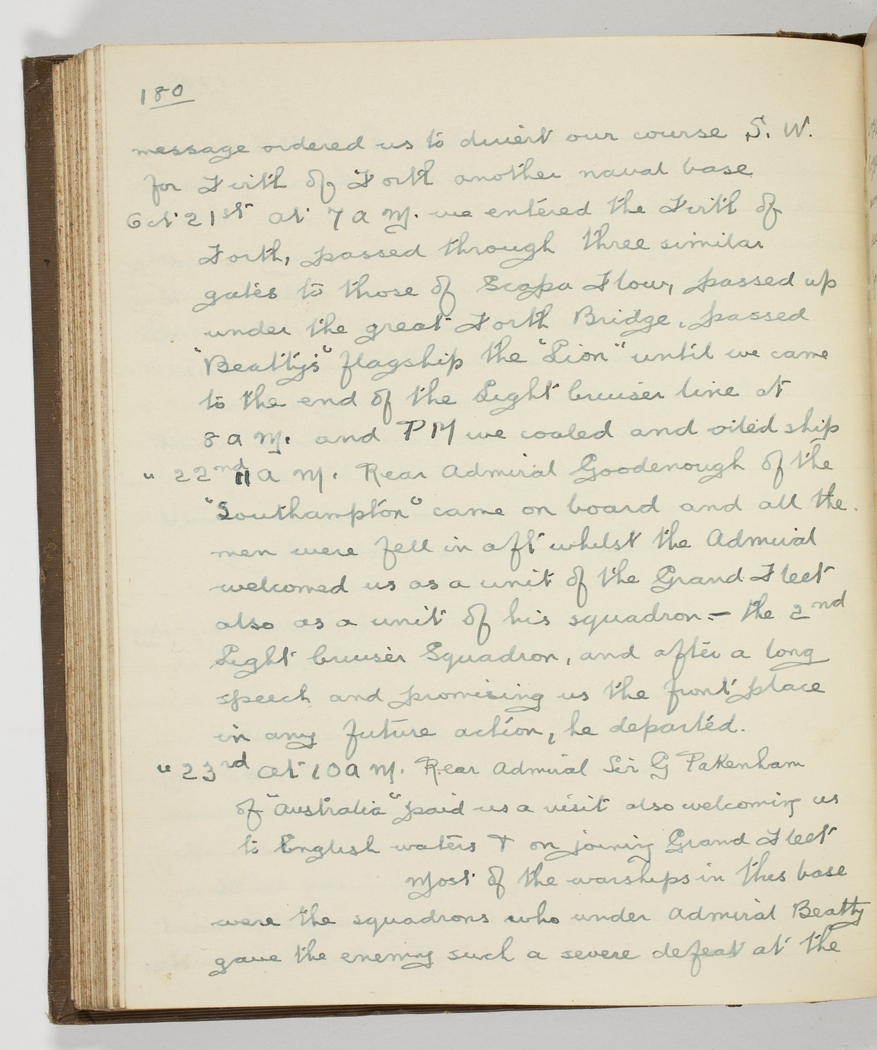 180
message ordered us to divert our course S. W.
for Firth of Forth another naval base
Oct 21st at 7 a M. we entered the Firth of
Forth, passed through three similar
gates to those of Scapa Flow, passed up
under the great Forth Bridge, passed
"Beatty's" flagship the "Lion" until we came
to the end of the Light Cruiser line at
8 a M. and PM we coaled and oiled ship
" 22nd 11 a M. Rear Admiral Goodenough of the
"Southampton" came on board and all the
men were fell in aft whilst the Admiral
welcomed us as a unit of the Grand Fleet
also as a unit of his squadron - the 2nd
Light Cruiser Squadron, and after a long
speech and promising us the front place
in any future action, he departed.
" 23rd at 10 a M. Rear Admiral Sir G Pakenham
of "Australia" paid us a visit also welcoming us
to English waters & on joining Grand Fleet
Most of the warships in this base
were the squadrons who under Admiral Beatty
gave the enemy such a severe defeat at the